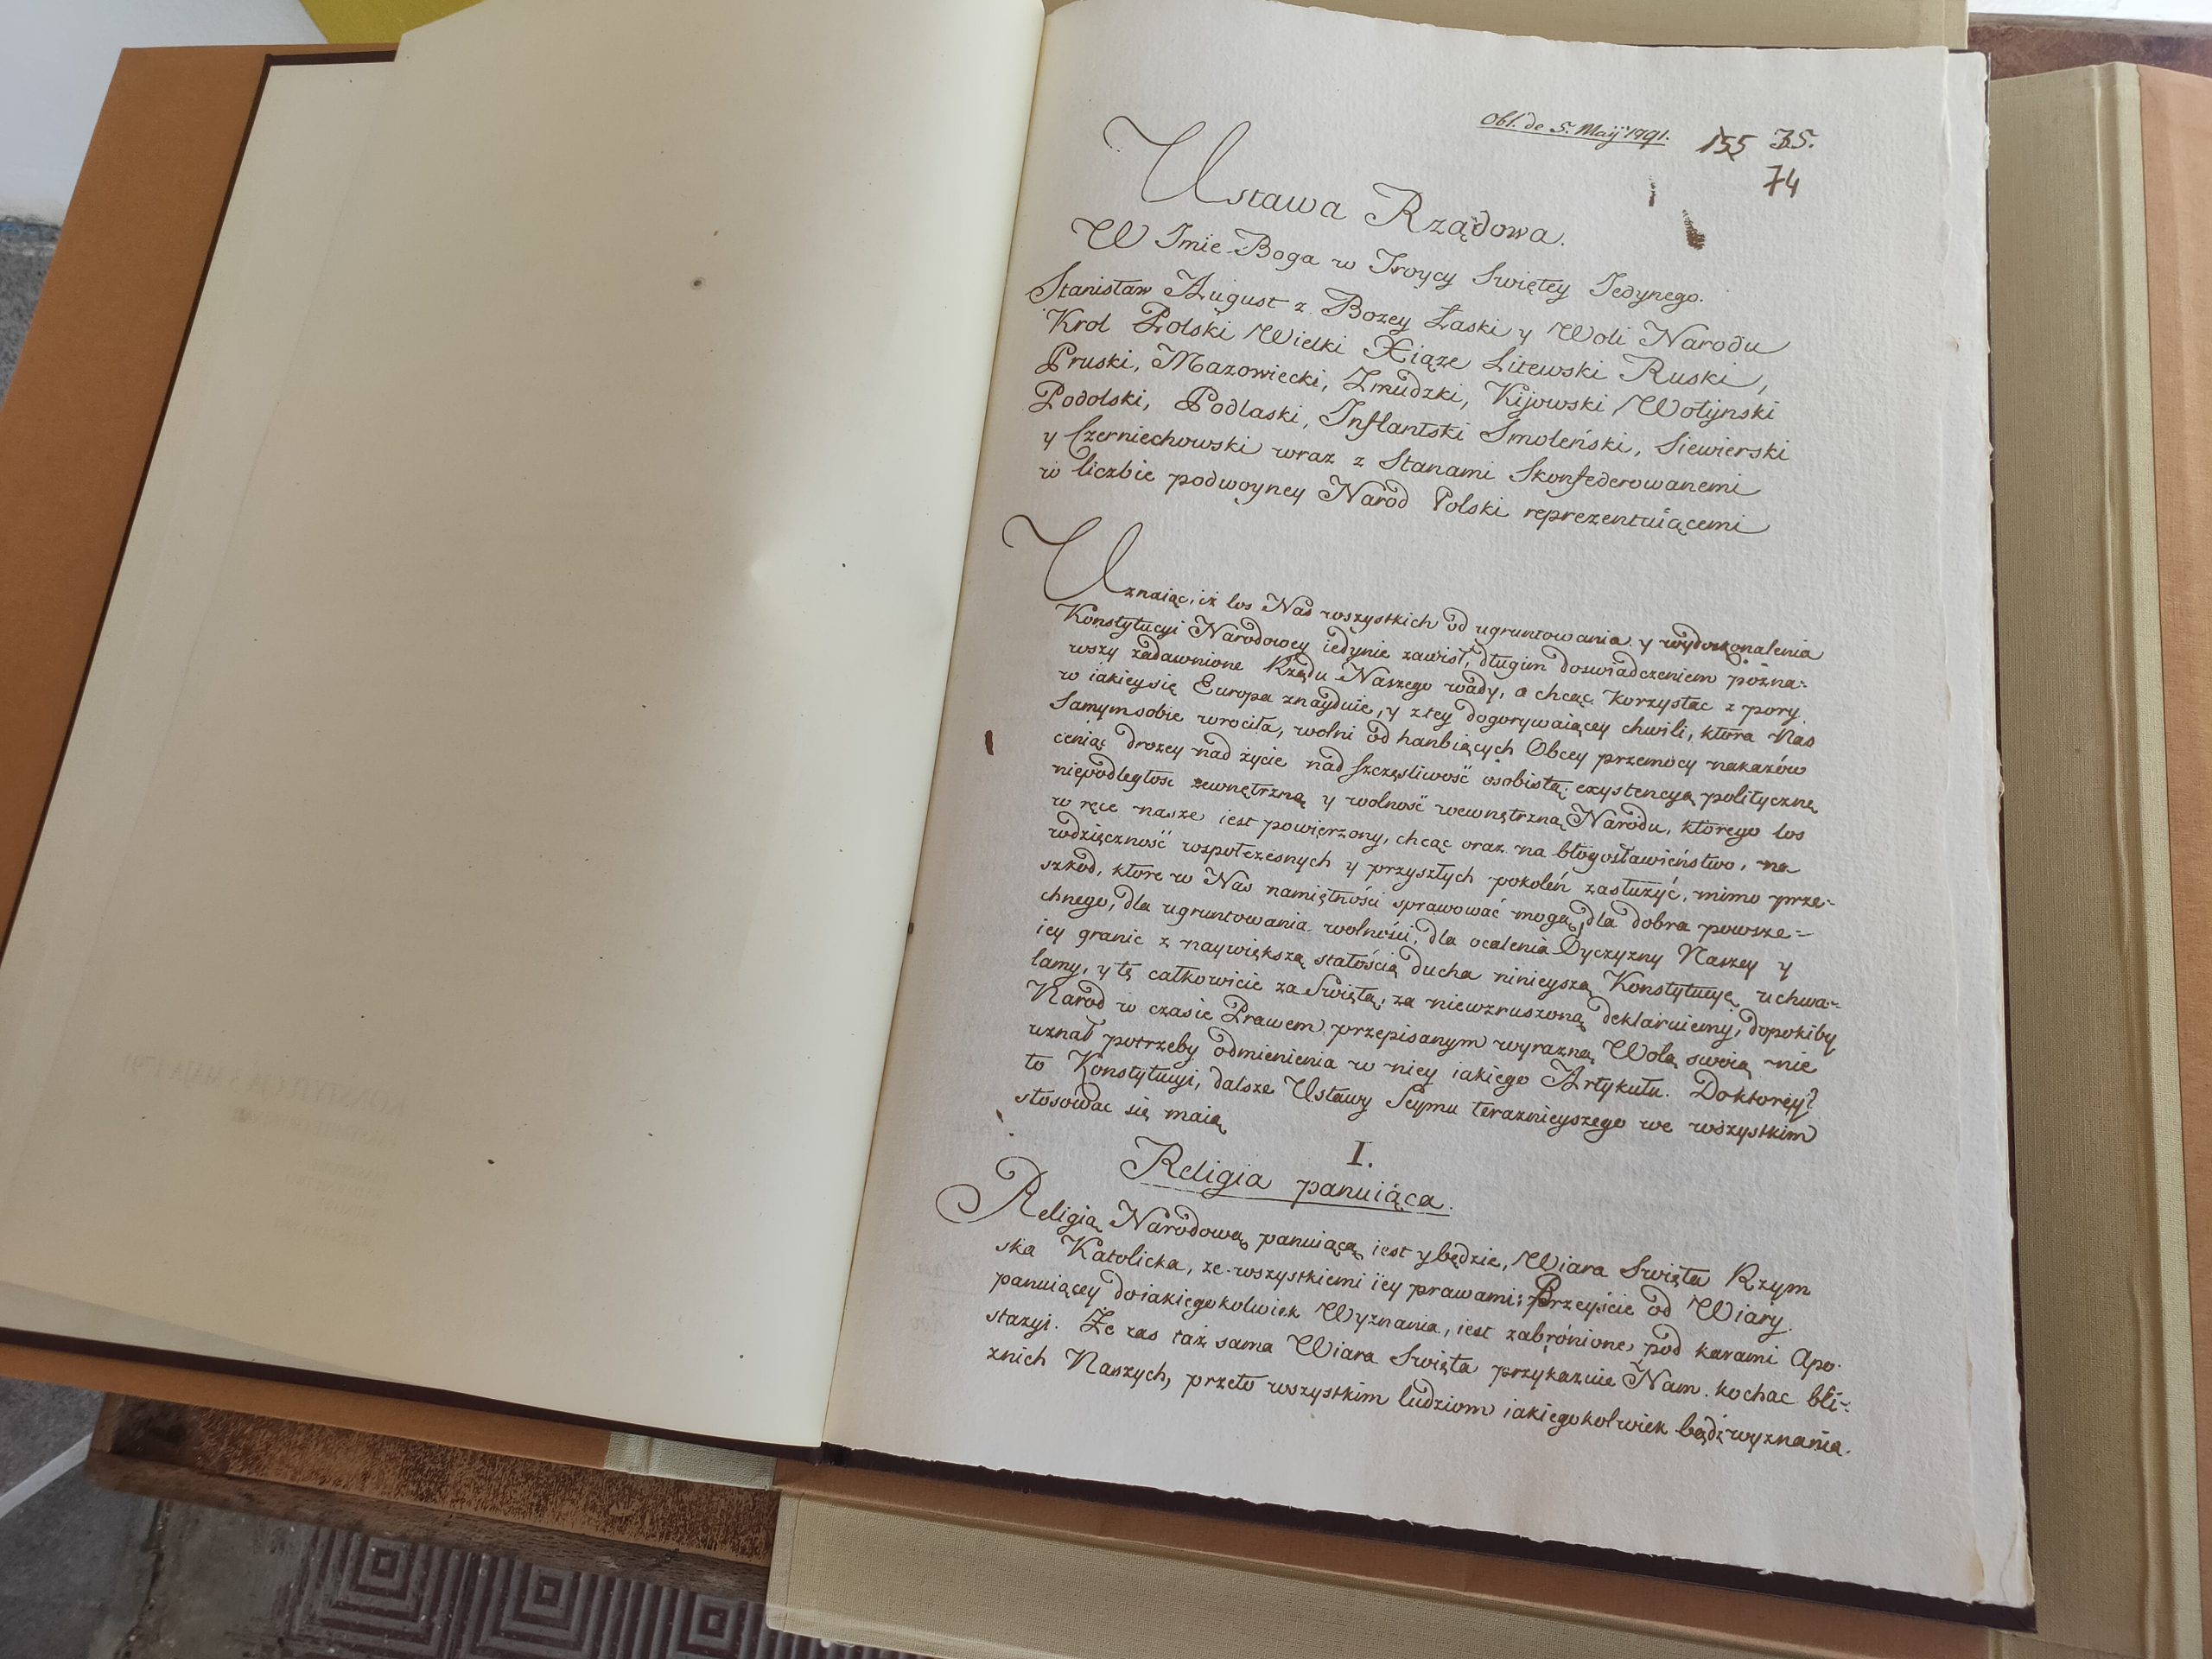 Obl. de 5. Maij 1791.
155 35.
74
Ustawa Rządowa.
W Imie Boga w Troycy Swiętey Jedynego.
Stanisław August z Bozey Łaski y Woli Narodu
Krol Polski Wielki Xiąze Litewski Ruski,
Pruski, Mazowiecki, Zmudzki, Kijowski, Wołynski
Podolski, Podlaski, Inflantski Smoleński, Siewierski
y Czerniechowski wraz z Stanami Skonfederowanemi
w liczbie podwoyney Narod Polski reprezentuiącemi
Uznaiąc, iż los Nas wszystkich od ugruntowania y wydoskonalenia
Konstytucyi Narodowey iedynie zawisł, długim doswiadczeniem pozna-
wszy zadawnione Rządu Naszego wady, a chcąc korzystac z pory
w iakiey się Europa znayduie, y z tey dogorywaiącey chwili, ktora Nas
samym sobie wrociła, wolni od hanbiących Obcey przemocy nakazów
ceniąc drozey nad życie nad szczęsliwość osobistą; exystencyą polityczną
niepodległosc zewnętrzną y wolność wewnętrzną Narodu, ktorego los
w ręce nasze iest powierzony, chcąc oraz na błogosławieństwo, na
wdzięczność wspołczesnych y przyszłych pokoleń zasłużyć, mimo prze-
szkod, ktore w Nas namiętności sprawować mogą, dla dobra powsze-
chnego, dla ugruntowania wolności, dla ocalenia Oyczyzny Naszey y
iey granic z naywiększą stałością ducha ninieyszą Konstytucyę uchwa-
lamy, y tę całkowicie za Swiętą, za niewzruszoną deklaruiemy, dopokiby
Narod w czasie Prawem przepisanym wyrazną Wolą swoią nie
uznał potrzeby odmienienia w niey iakiego Artykułu. Doktorey
to Konstytucyi, dalsze Ustawy Seymu teraznieyszego we wszystkim
stosowac się maią
I.
Religia panuiąca.
Religią Narodową panuiącą iest y będzie, Wiara Swięta Rzym
ska Katolicka, ze wszystkiemi iey prawami; Przeyście od Wiary
panuiącey do iakiegokolwiek Wyznania, iest zabronione pod karami Apo-
stazyi. Ze zas taż sama Wiara Swięta przykazuie Nam kochac bli-
znich Naszych, przeto wszystkim ludziom iakiegokolwiek bądź wyznania